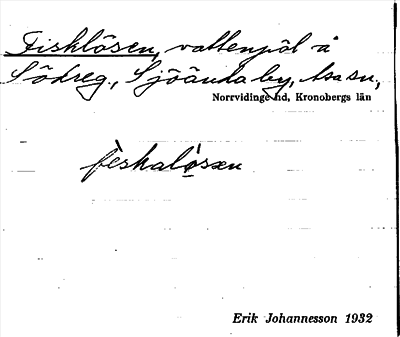 Fisklösen, vattenpöl å
Södreg., Sjöända by, Asa sn,
Norrvidinge hd, Kronobergs län
fèskalö́sæn
Erik Johannesson 1932